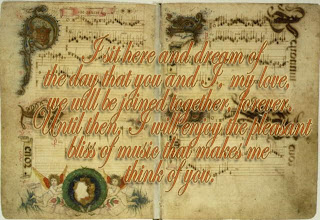 I sit here and dream of
the day that you and I, my love,
we will be joined together, forever.
Until then, I will enjoy the pleasant
bliss of music that makes me
think of you.